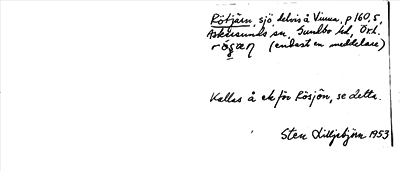 Rötjärn, sjö, delvis å Vinna, p 160,5,
Askersunds sn, Sundbo hd, Ö.l.
(endast en meddelare)
Kallas å ek för Rösjön, se detta.
Sten Lilljebjörn 1953